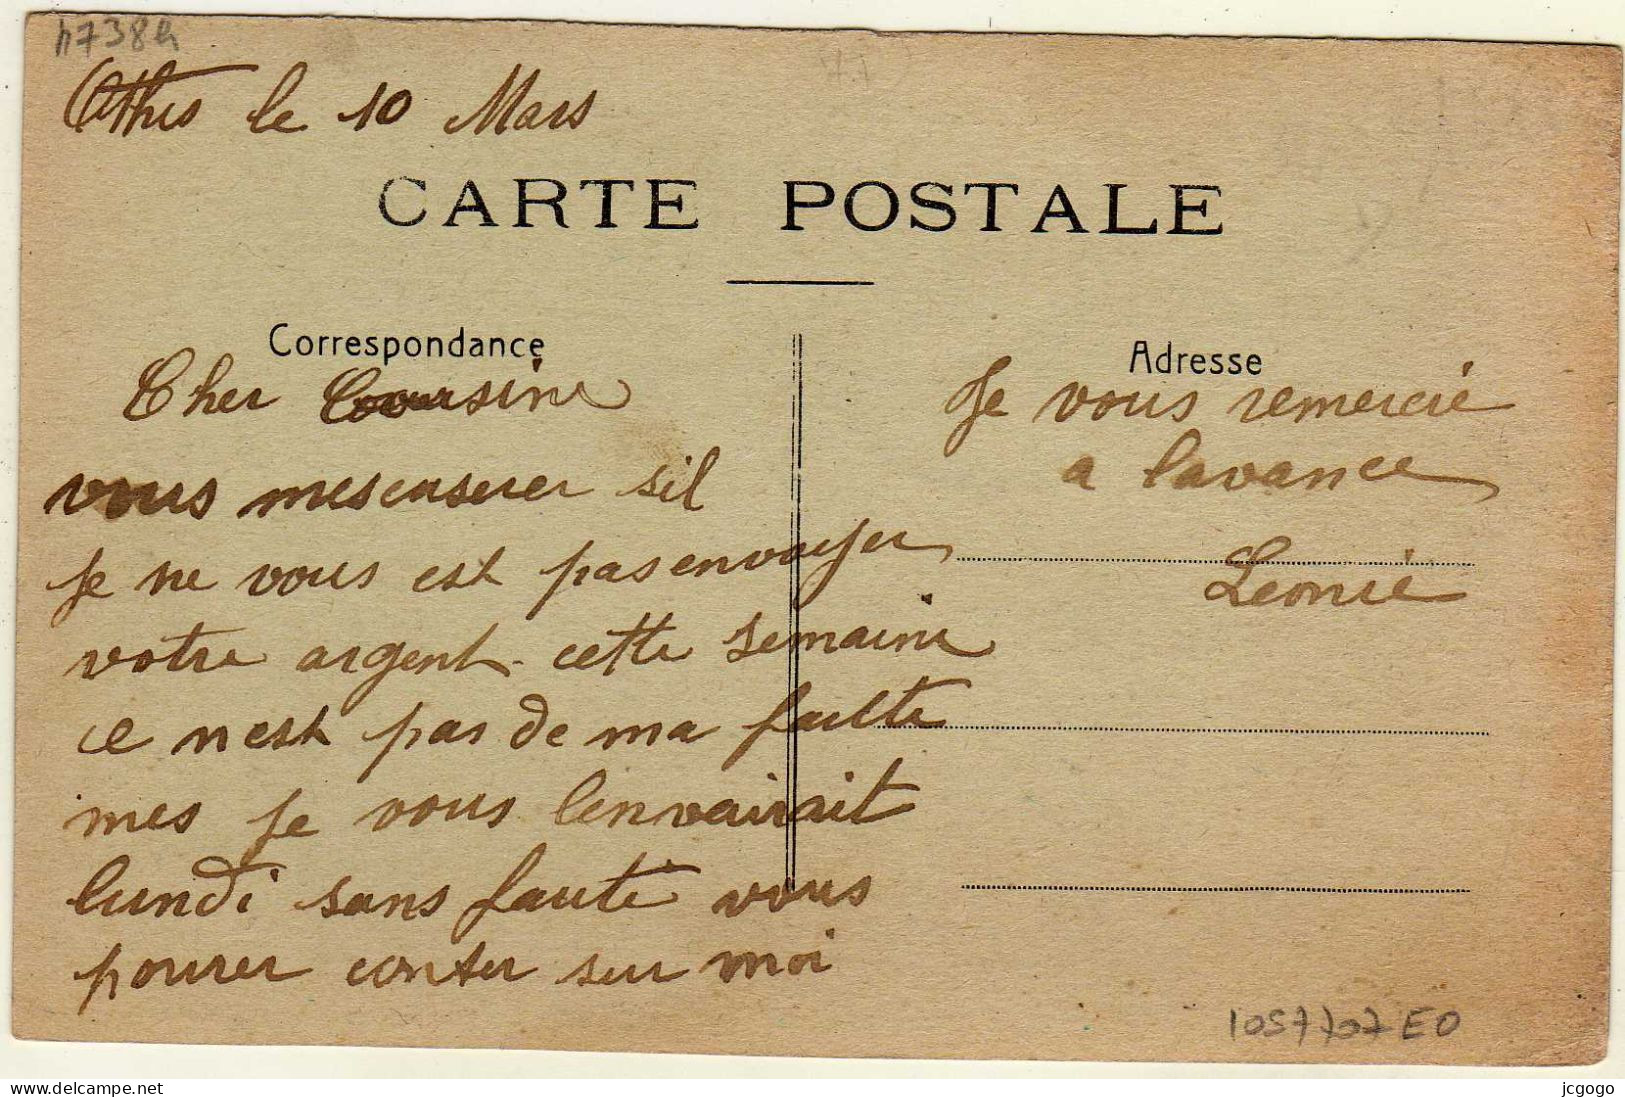 h738h
Othis le 10 Mars
CARTE POSTALE
Correspondance
Cher Coursine
vous mescuserer sil
je ne vous est pas envoyer
votre argent cette semaine
ce nest pas de ma faulte
mes je vous lenvairait
lundi sans faute vous
pourer conter sur moi
Adresse
Je vous remercie
a lavance
Leonie
1057707 EO
jcgogo